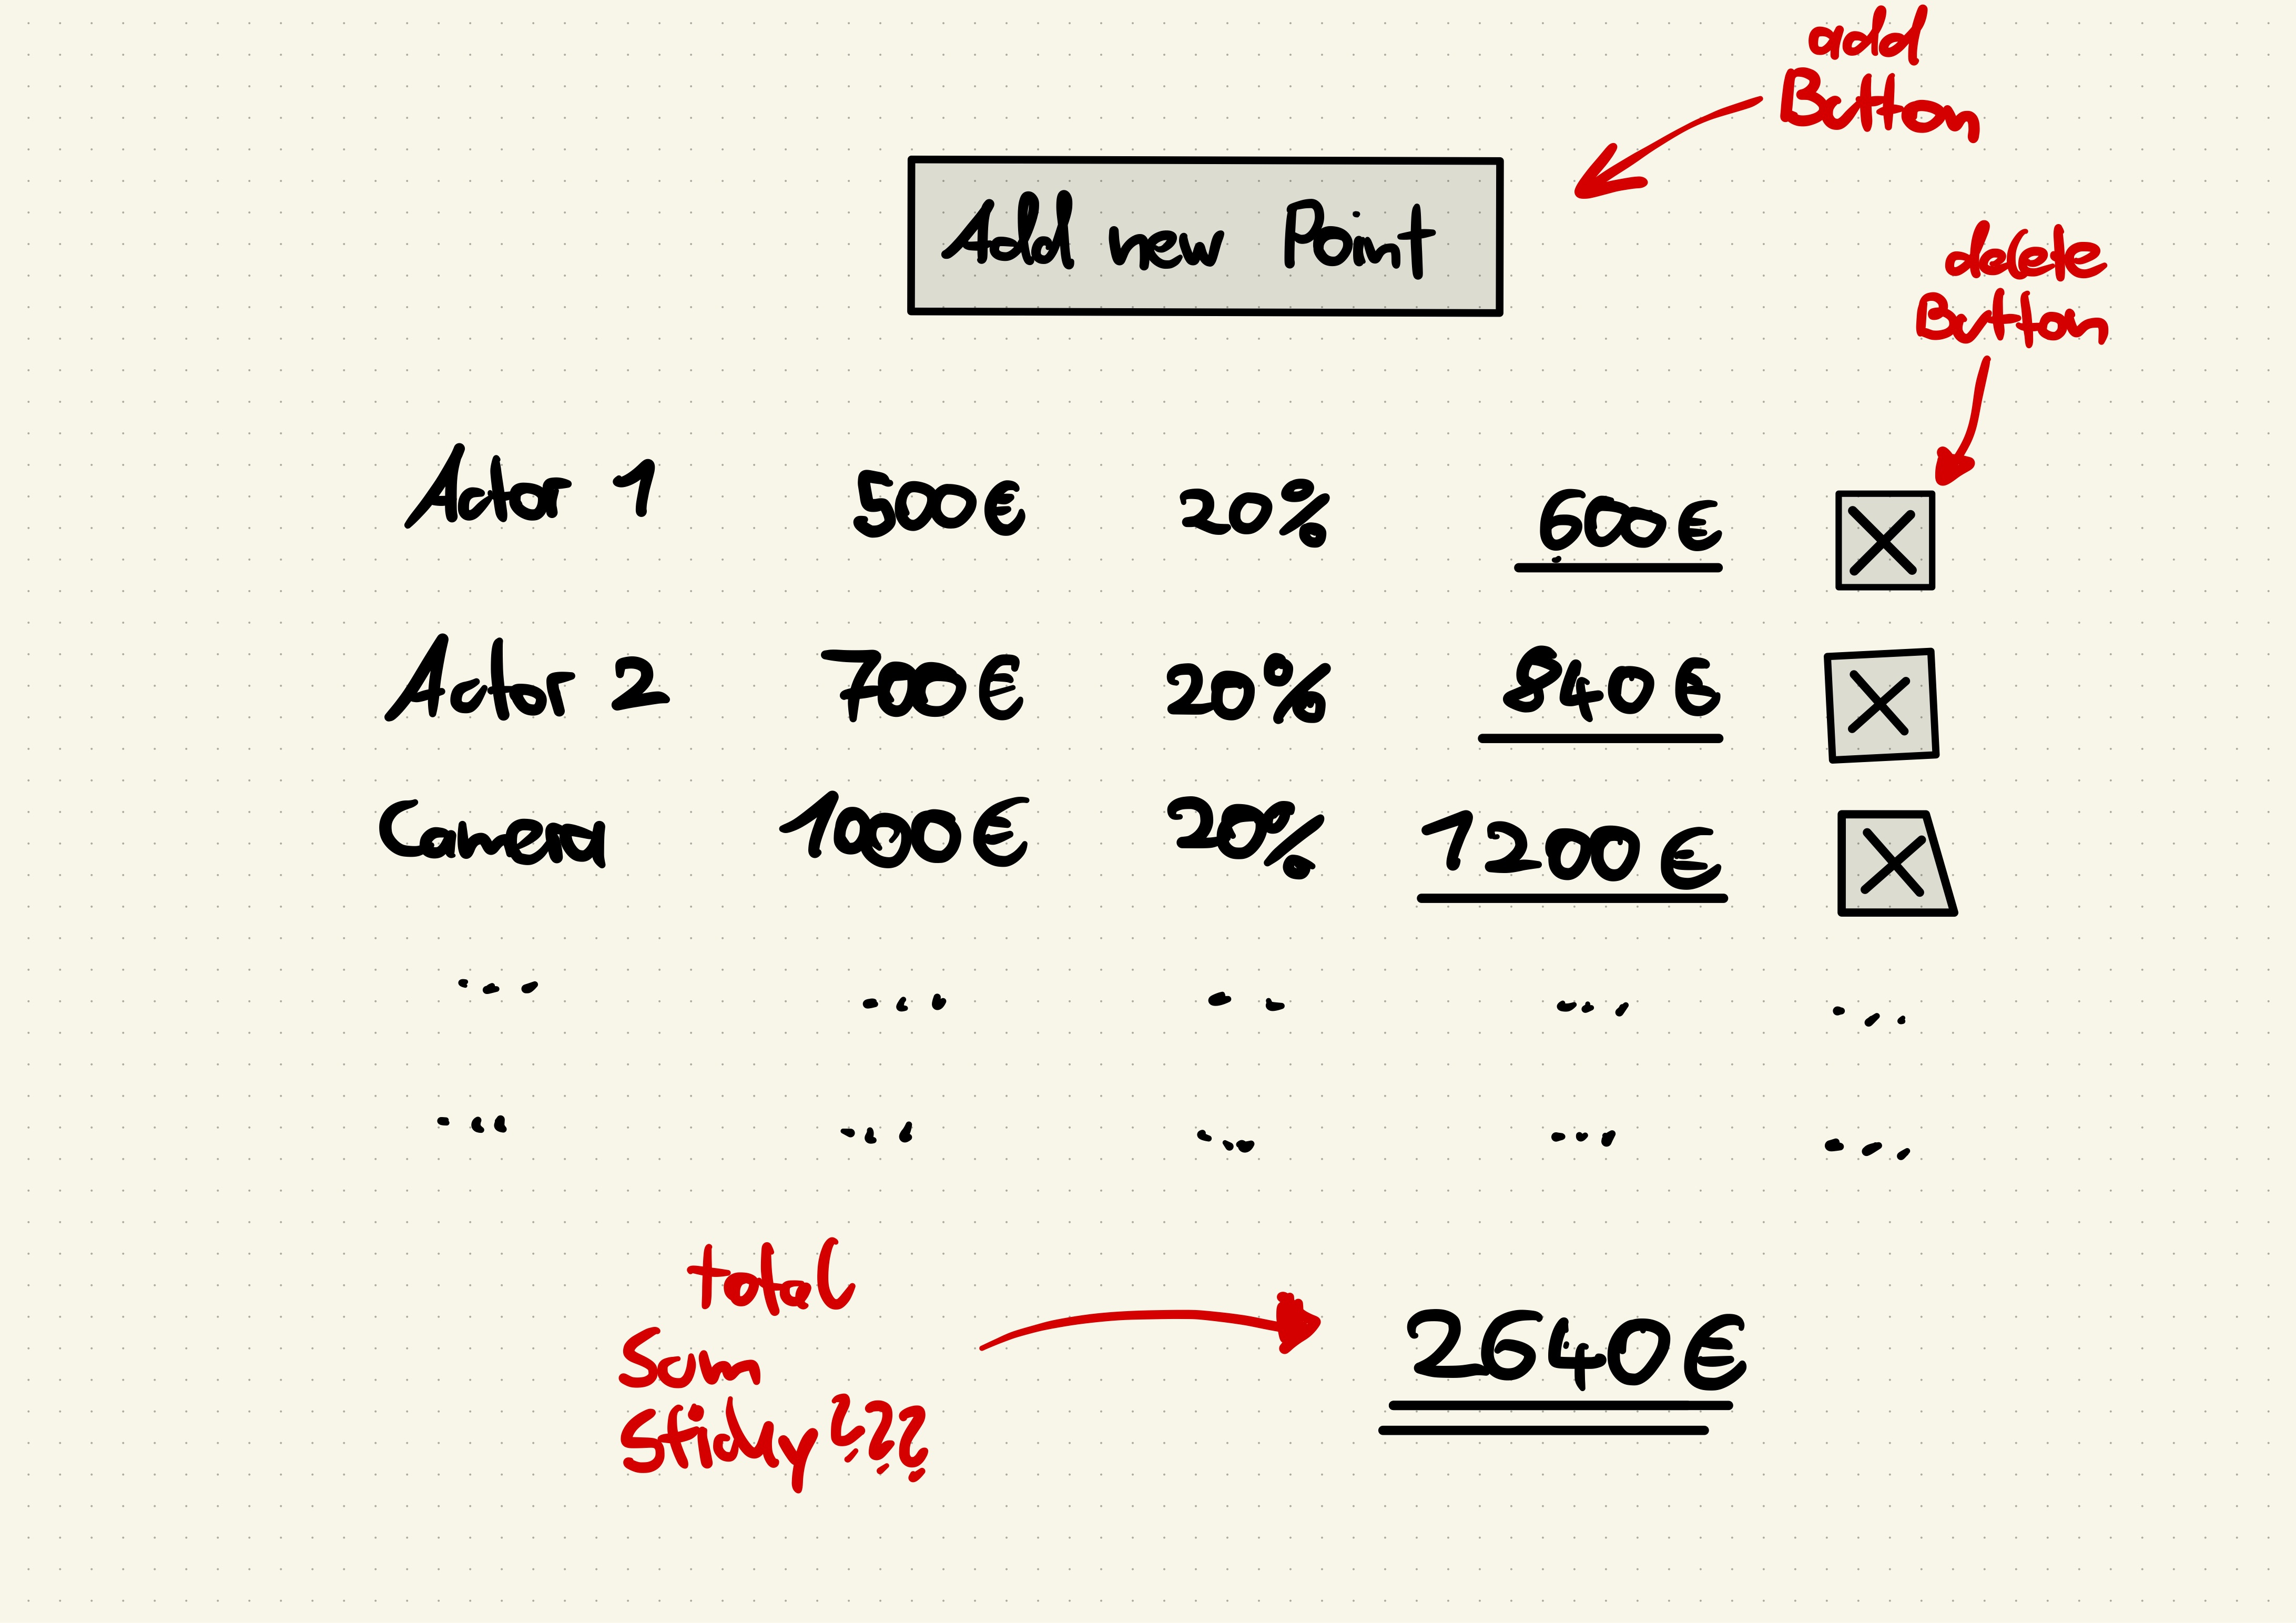 add
Button
Add new Point
delete
Button
Actor 1 500€ 20% 600€
Actor 2 700€ 20% 840€
Camera 1000€ 20% 1200€
... ... .. ... ...
... ... ... ... ...
total
Sum
Sticky???
2640€